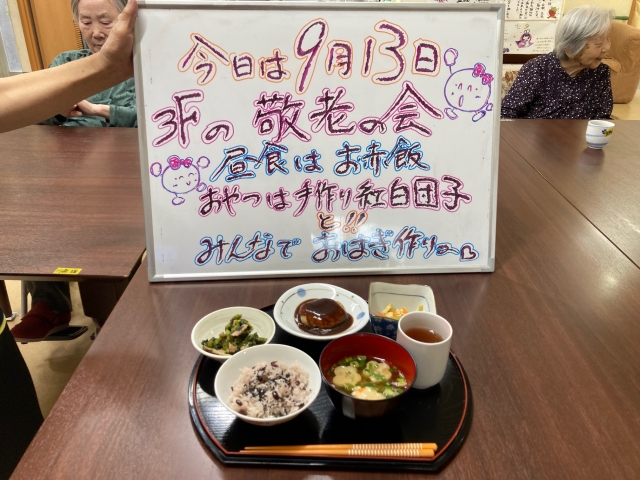 今日は9月13日
3Fの 敬老の会
昼食は お赤飯
おやつは手作り紅白団子
と!!
みんなで おはぎ作り〜♡